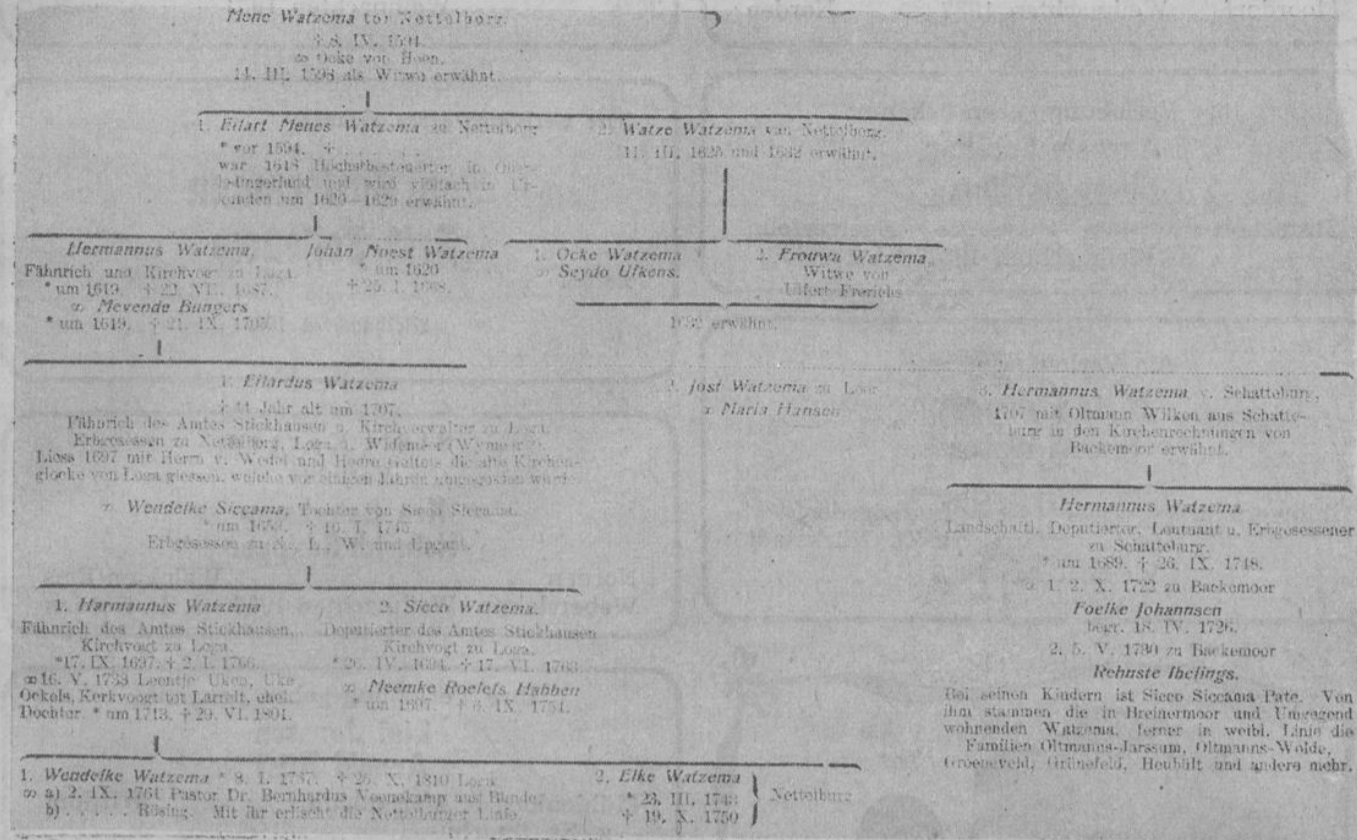 Mene Watzema tor Nettelborg.
† 8. IX. 1594.
∞ Ocke von Hoon.
14. III. 1598 als Witwe erwähnt.
1. Eilart Menes Watzema zu Nettelborg
* vor 1594. †
war 1618 Höchstbesteuerter in Over-
ledingerland und wird vielfach in Ur-
kunden um 1620—1629 erwähnt.
2. Watze Watzema van Nettelborg.
11. III. 1625 und 1632 erwähnt.
Hermannus Watzema,
Fähnrich und Kirchvogt zu Loga.
* um 1619. † 22. VII. 1687.
∞ Mevende Bungers
* um 1649. † 21. IX.
Johan Noest Watzema
* um 1620
† 25. I. 1668.
1. Ocke Watzema
∞ Seydo Ufkens.
2. Frouwa Watzema
Witwe von
Uffert Frerichs
1632 erwähnt.
1. Eilardus Watzema
† 44 Jahr alt um 1707.
Fähnrich des Amtes Stickhausen u. Kirchverwalter zu Loga.
Erbgesessen zu Nettelborg, Loga u. Widemeer (Wymeer).
Liess 1697 mit Herrn v. Wedel und die alte Kirchen-
glocke von Loga giessen, welche vor einigen Jahren umgegossen wurde.
∞ Wendelke Siccama, Tochter von Sicco Siccama.
* um † 16. I. 1745.
Erbgesessen zu N., L., W. und Upgant.
2. Jost Watzema zu Leer
∞ Maria Hansen
3. Hermannus Watzema v. Schatteburg,
1707 mit Oltmann Wilken aus Schatte-
burg in den Kirchenrechnungen von
Backemoor erwähnt.
Hermannus Watzema
Landschaftl. Deputierter, Leutnant u. Erbgesessener
zu Schatteburg.
* um 1689. † 26. IX. 1748.
∞ 1. 2. X. 1722 zu Backemoor
Foelke Johannsen
begr. 18. IV. 1726.
2. 5. V. 1730 zu Backemoor
Rehnste Ibelings.
Bei seinen Kindern ist Sicco Siccama Pate. Von
ihm stammen die in Breinermoor und Umgegend
wohnenden Watzema, ferner in weibl. Linie die
Familien Oltmanns-Jarssum, Oltmanns-Wolde,
Groeneveld, Grünefeld, Heubült und andere mehr.
1. Harmannus Watzema
Fähnrich des Amtes Stickhausen,
Kirchvogt zu Loga.
*17. IX. 1697. † 2. I. 1766.
∞ 16. V. 1733 Leentje Uken, Uke
Ockels, Kerkvoogt tot Larrelt, ehel.
Dochter. * um 1713. † 29. VI. 1801.
2. Sicco Watzema.
Deputierter des Amtes Stickhausen
Kirchvogt zu Loga.
* 26. IV. 1694. † 17. VI. 1763.
∞ Neemke Roelefs Habben
* um 1697. † 6. IX. 1754.
1. Wendelke Watzema * 8. I. 1737. † 26. X. 1810 Loga
∞ a) 2. IX. 1761 Pastor Dr. Bernhardus Veenekamp aus Bunde,
b) . . . . . Rösing. Mit ihr erlischt die Nettelburger Linie.
2. Elke Watzema
* 23. III. 1743
† 19. X. 1750
Nettelburg